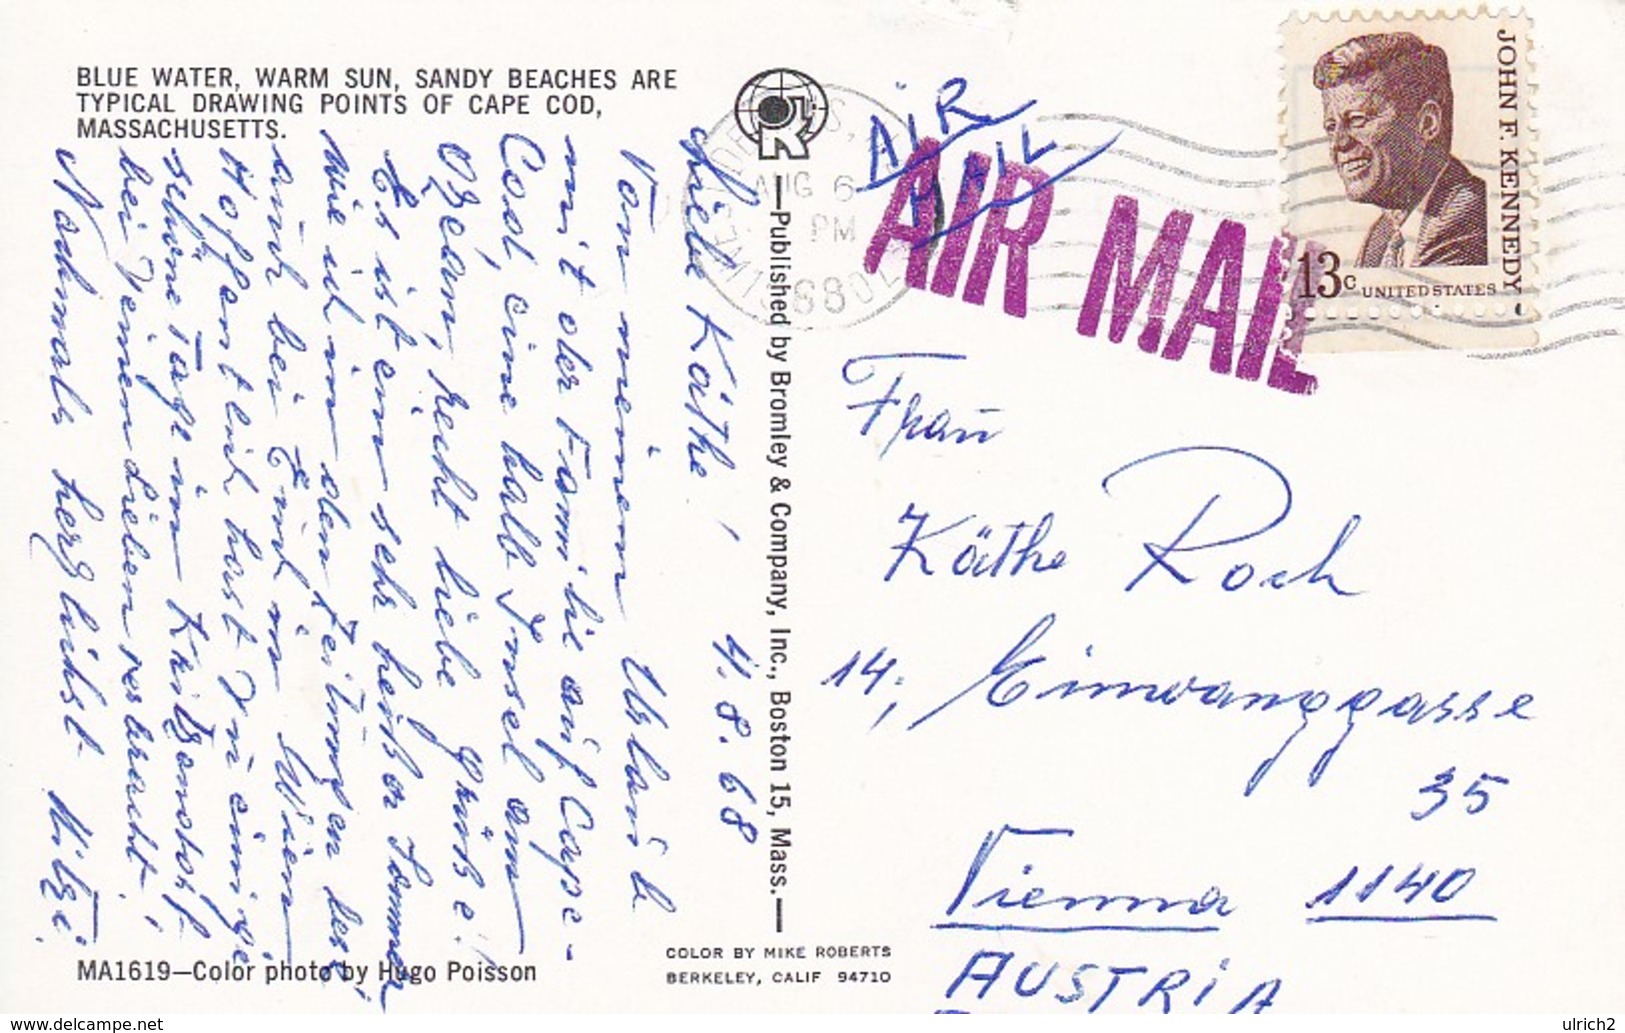 BLUE WATER, WARM SUN, SANDY BEACHES ARE
TYPICAL DRAWING POINTS OF CAPE COD,
MASSACHUSETTS.
Liebe Käthe,
4.8.68
Von meinem Urlaub
mit der Familie auf Cape-
Cod, eine halb Insel am
Ozean, recht liebe Grüße!
Es ist ein sehr heißer Sommer
wie ich in den Zeitungen lese
auch bei Euch in Wien
Hoffentlich hast Du einige
schöne Tage in
bei Deinen Lieben verbracht!
Nochmals herzlichst Mitzi.
MA1619—Color photo by Hugo Poisson
—Published by Bromley & Company, Inc., Boston 15, Mass.—
COLOR BY MIKE ROBERTS
BERKELEY, CALIF 94710
AUG 6
PM
AIR
MAIL
AIR MAIL
JOHN F. KENNEDY
13c UNITED STATES
Frau
Käthe Roch
14, Einwanggasse
35
Vienna 1140
AUSTRIA
www.delcampe.net
ulrich2